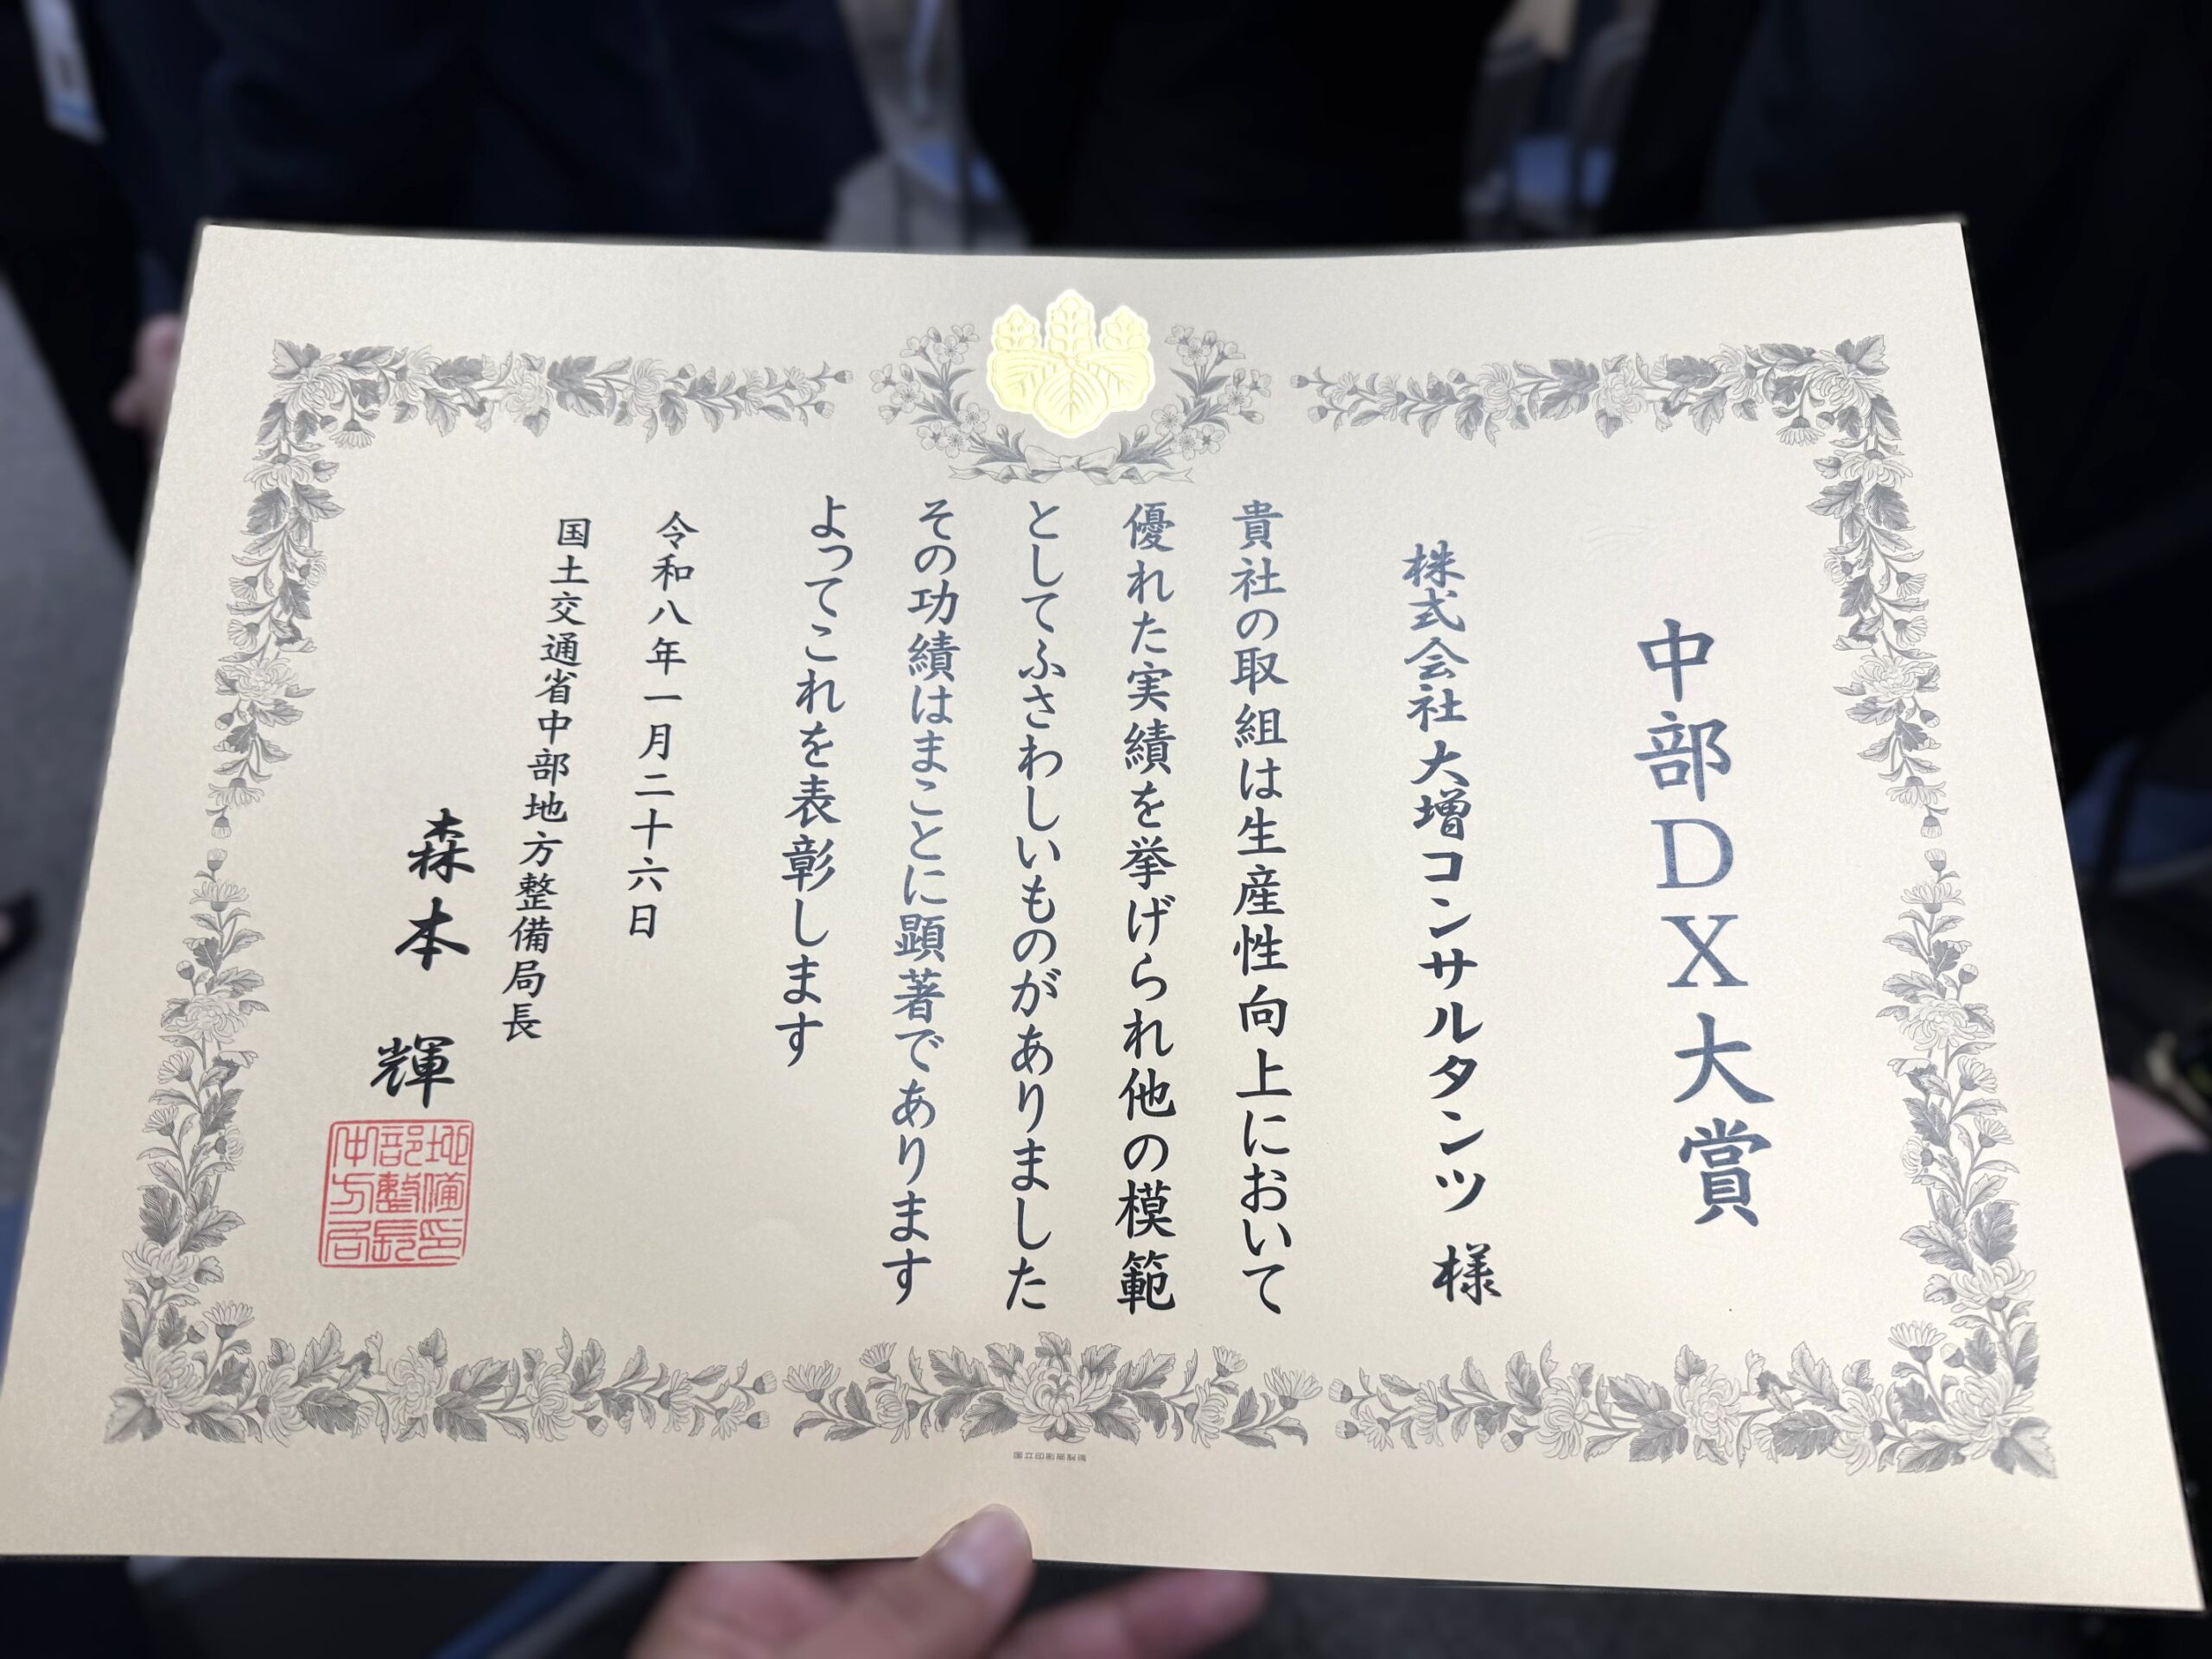 中部DX大賞
株式会社大増コンサルタンツ 様
貴社の取組は生産性向上において
優れた実績を挙げられ他の模範
としてふさわしいものがありました
その功績はまことに顕著であります
よってこれを表彰します
令和八年一月二十六日
国土交通省中部地方整備局長
森本 輝
地備印
部整長
中方局
国立印刷局製造